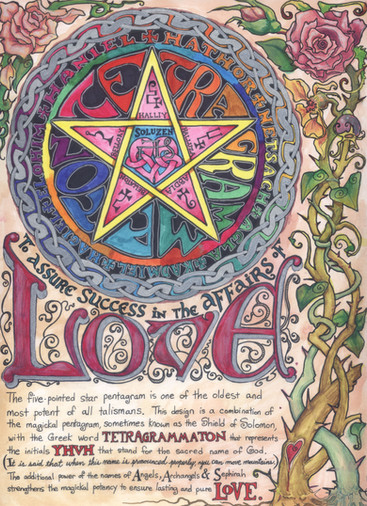 HANIEL + HATHOR + NETSACH +
TETRAGRAMMATON
HALLIY
SOLUZEH
To assure success in the affairs of
Love
The five-pointed star pentagram is one of the oldest and
most potent of all talismans. This design is a combination
of the magickal pentagram, sometimes known as the Shield of Solomon,
with the Greek word TETRAGRAMMATON that represents
the initials YHVH that stand for the sacred name of God.
(It is said that when this name is pronounced properly, you can move mountains)
The additional power of the names of Angels, Archangels & Sephirah
strengthens the magickal potency to ensure lasting and pure LOVE.